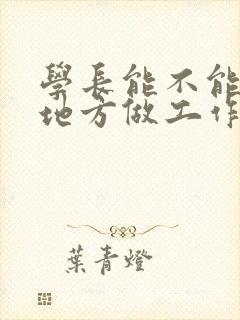 學長能不能
地方做工作
葉青燈